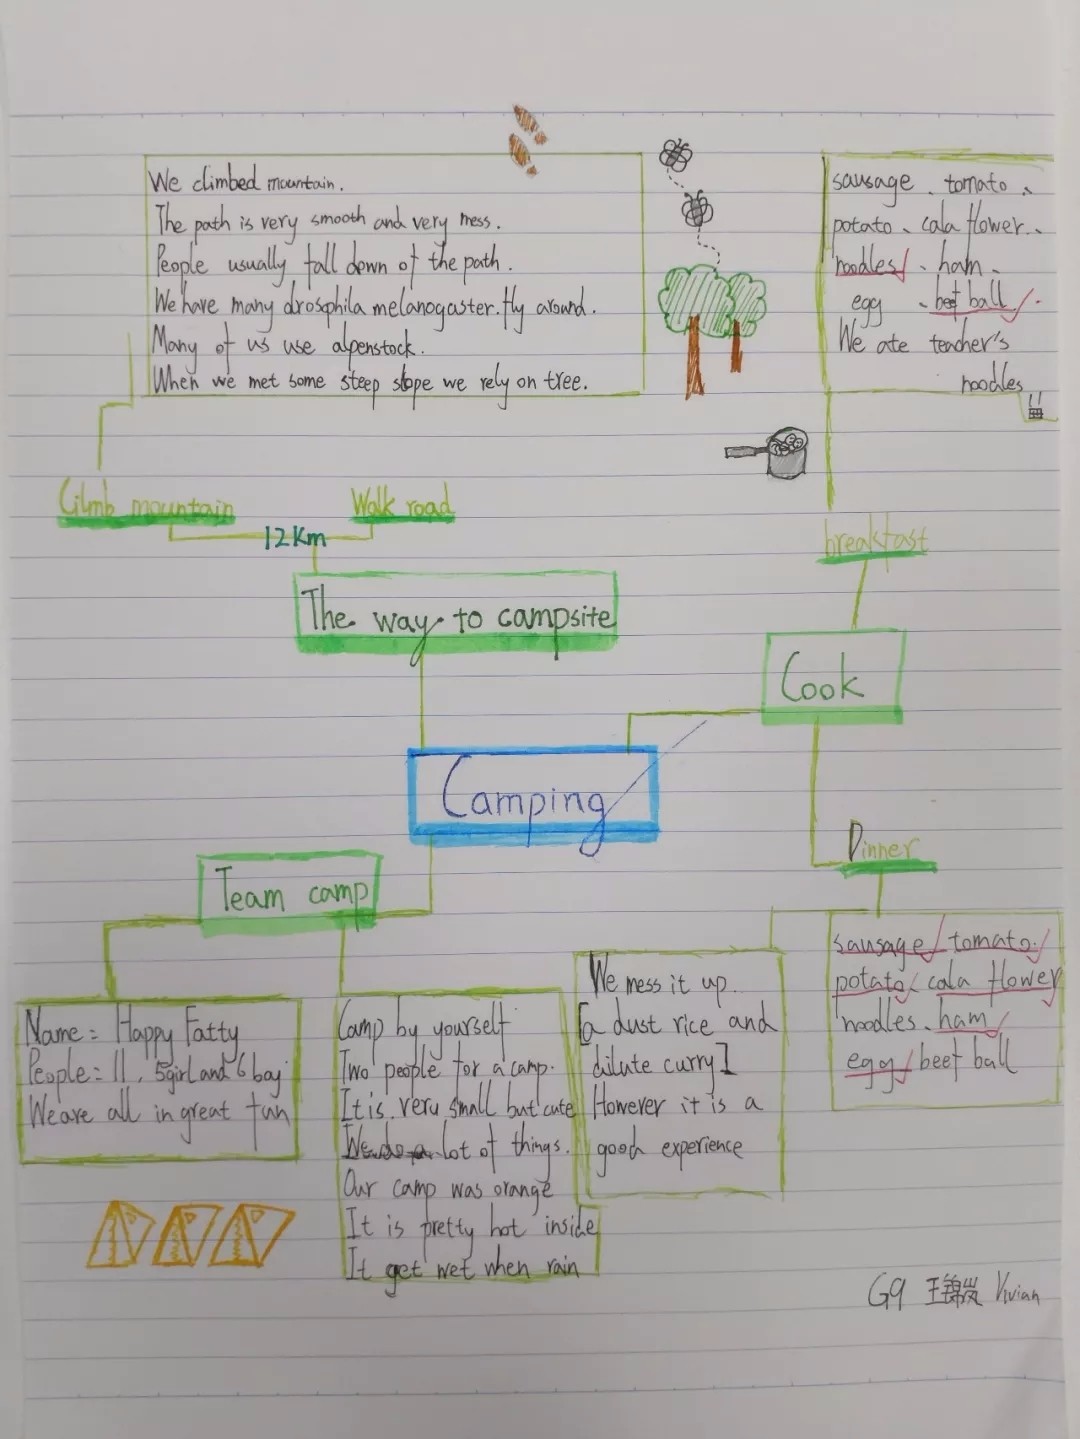 We climbed mountain.
The path is very smooth and very mess.
People usually fall down of the path.
We have many drosophila melanogaster.fly around.
Many of us use alpenstock.
When we met some steep slope we rely on tree.
sausage、tomato、
potato、cala flower、
noodles、ham、
egg、beef ball.
We ate teacher's
noodles
Climb mountain
Walk road
12Km
The way to campsite
breakfast
Cook
Camping
Dinner
Team camp
Name= Happy Fatty
People= 11, 5girl and 6 boy
We are all in great fun
Camp by yourself
Two people for a camp.
It is very small but cute
We do a lot of things.
Our camp was orange
It is pretty hot inside
It get wet when rain
We mess it up.
[a dust rice and
dilute curry]
However it is a
good experience
sausage、tomato、
potato、cala flower
noodles、ham、
egg、beef ball
G9 王锦岚 Vivian